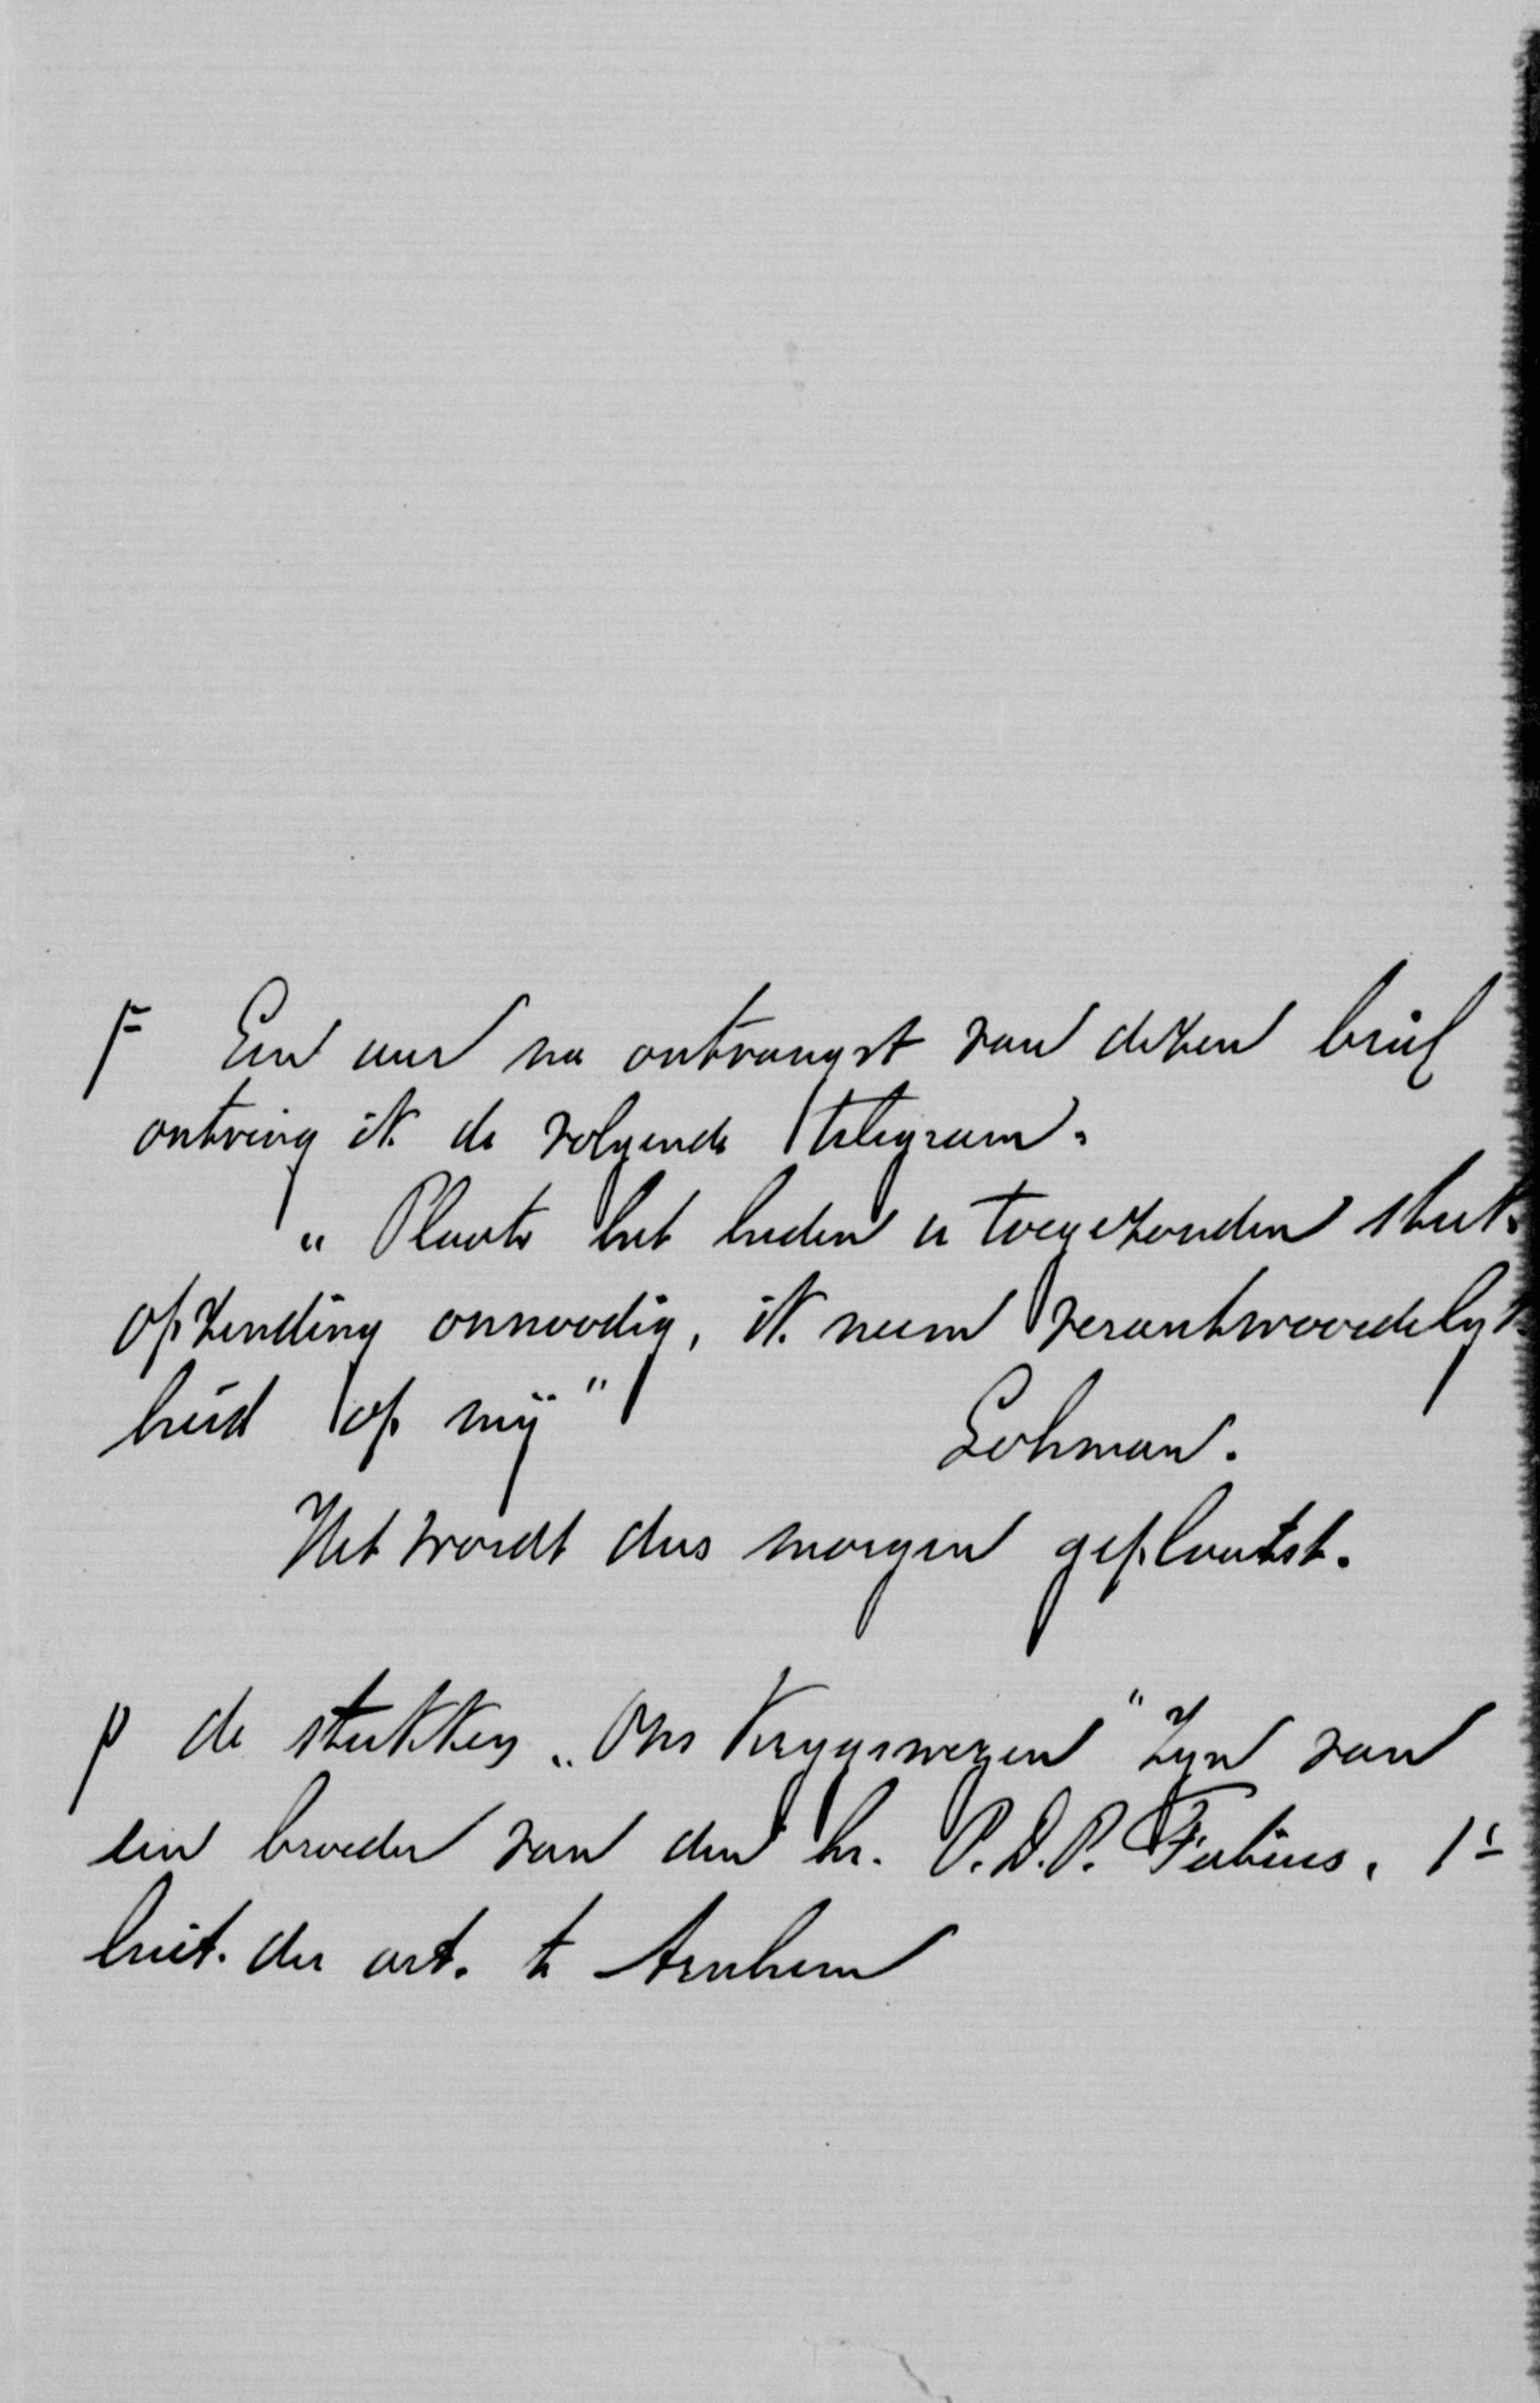 F Een uur na ontvangst van dezen brief
ontving ik de volgende telegram.
„Plaats het heden u toegezonden stuk.
opzending onnoodig, ik neem verantwoordelyk
heid op mij"
Lohman.
Het wordt dus morgen geplaatst.
p de stukken „Ons Krygswezen" zyn van
een broeder van den hr. P.D.P. Fabius, 1e
luit. der art. te Arnhem